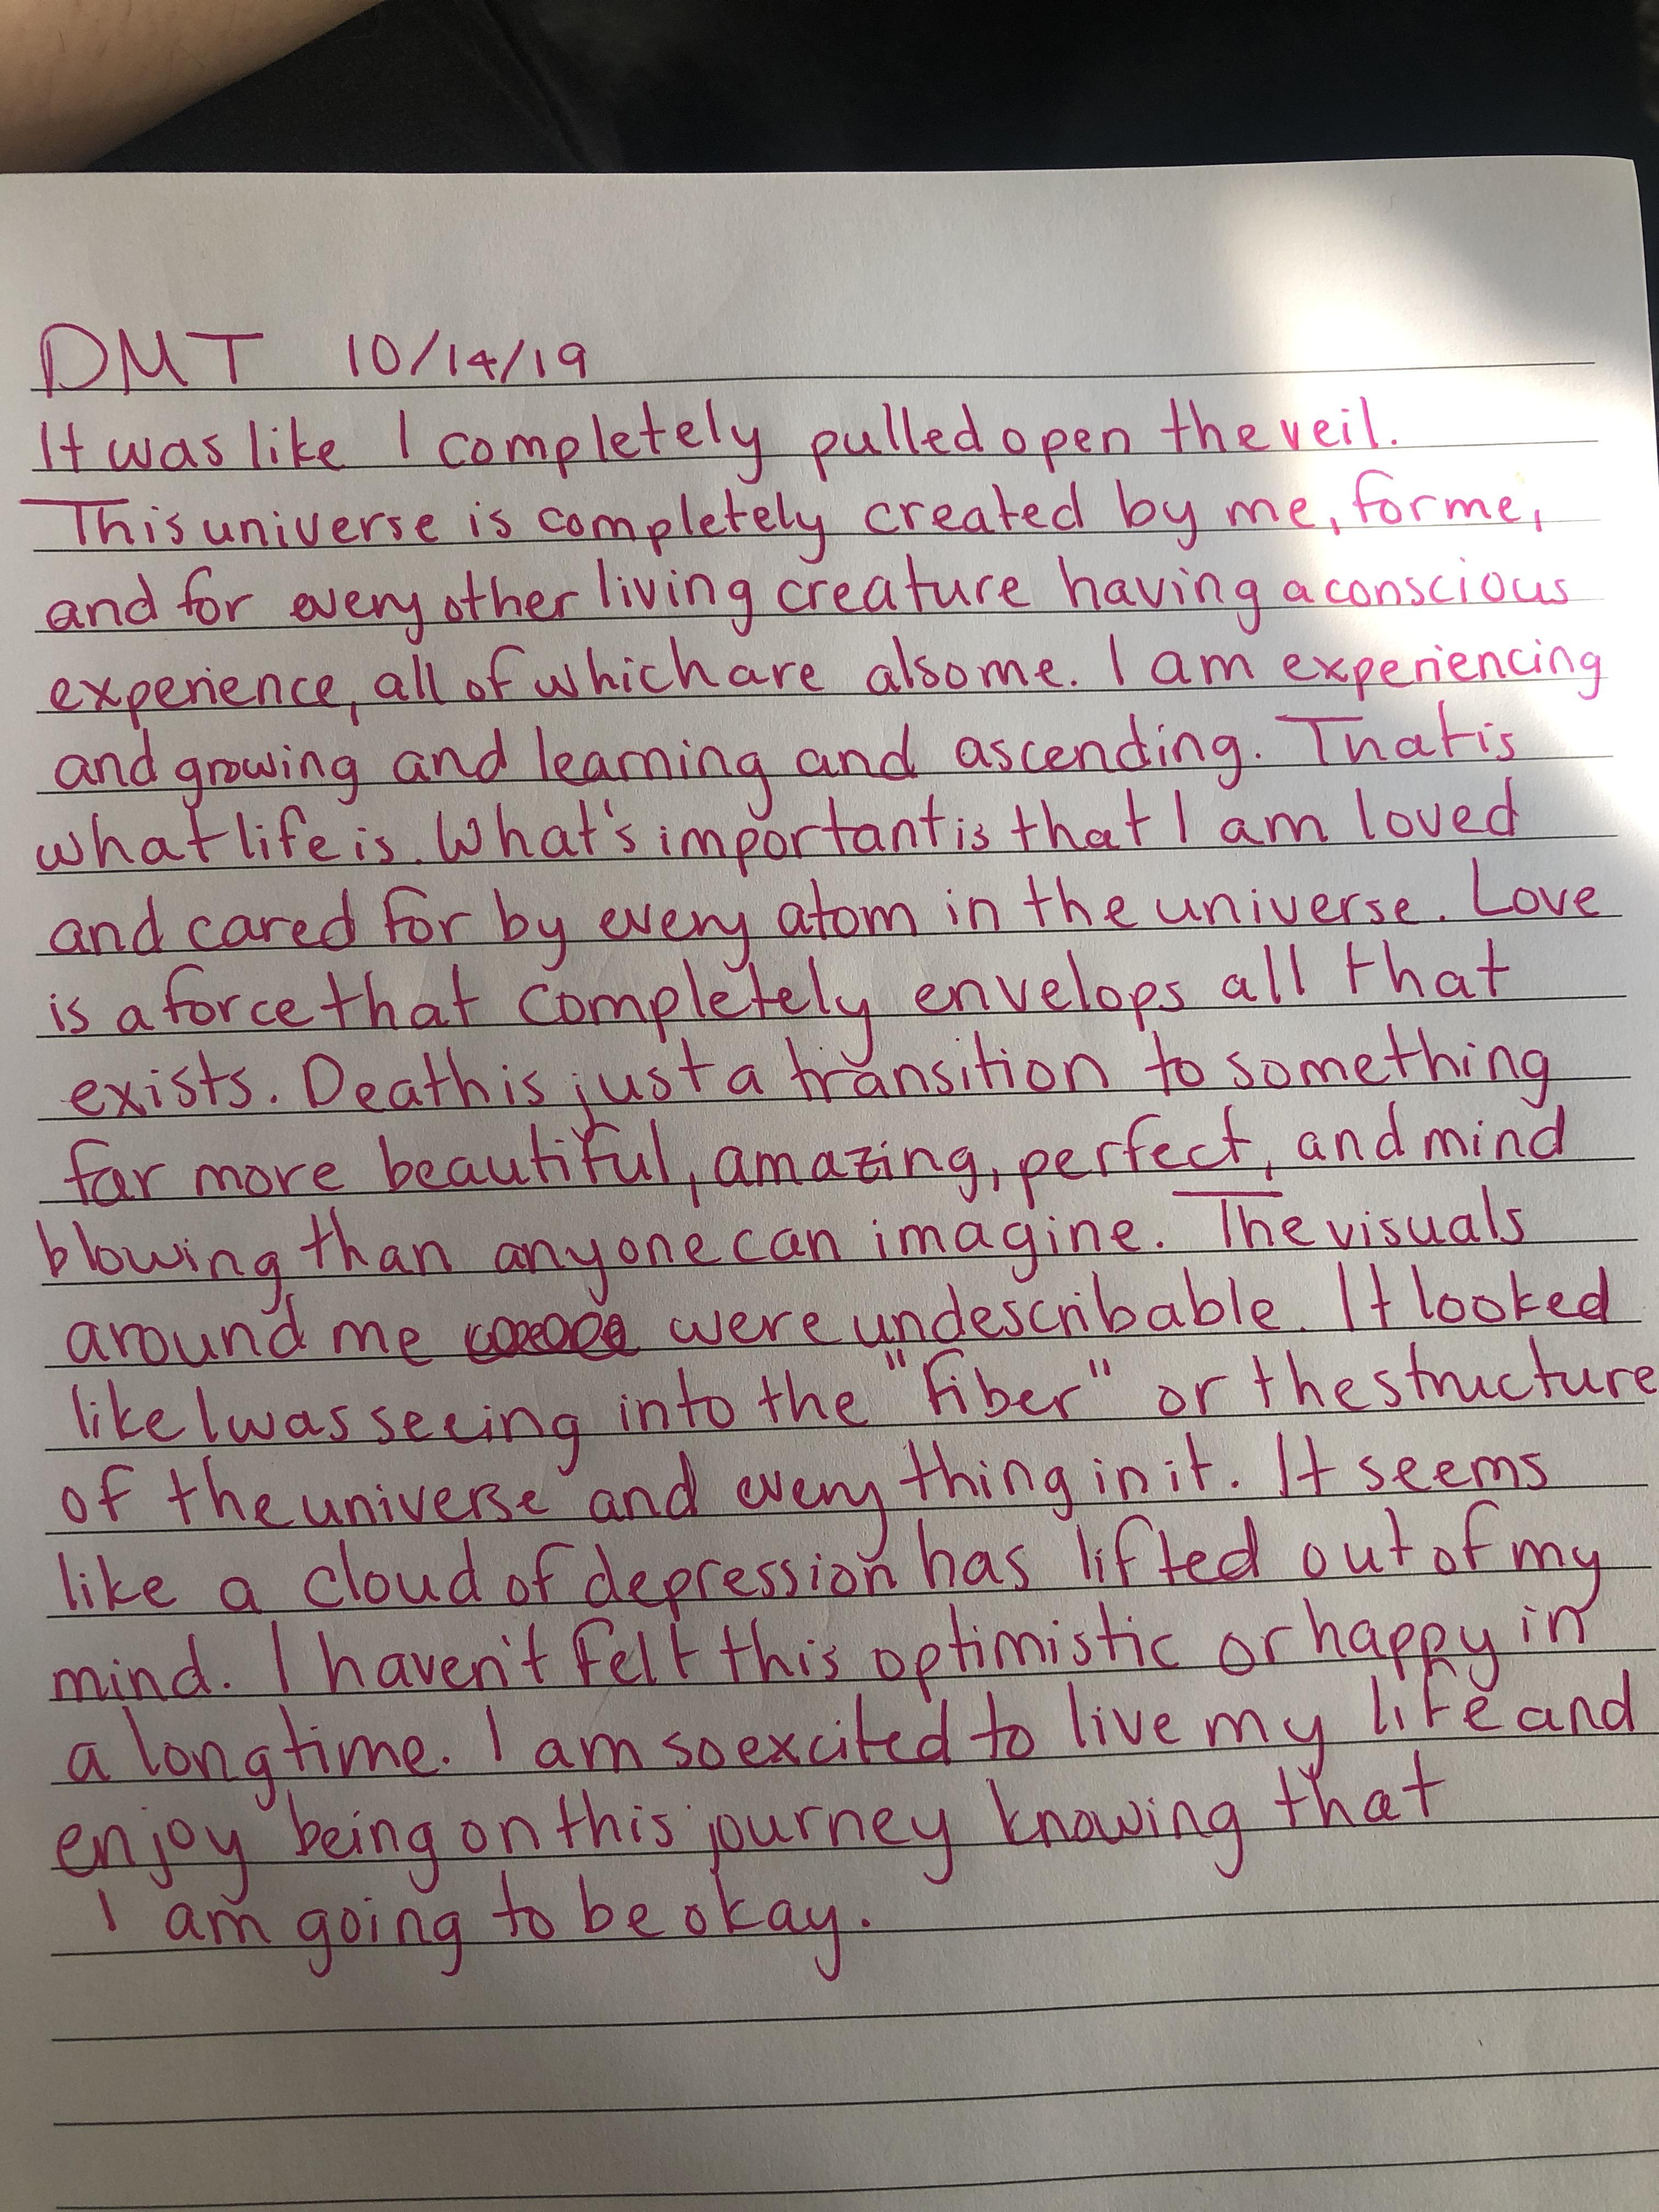 DMT 10/14/19
It was like I completely pulled open the veil.
This universe is completely created by me, for me,
and for every other living creature having a conscious
experience, all of which are also me. I am experiencing
and growing and learning and ascending. That is
what life is. What's important is that I am loved
and cared for by every atom in the universe. Love
is a force that completely envelops all that
exists. Death is just a transition to something
far more beautiful, amazing, perfect, and mind
blowing than anyone can imagine. The visuals
around me were undescribable. It looked
like I was seeing into the "fiber" or the structure
of the universe and every thing in it. It seems
like a cloud of depression has lifted out of my
mind. I haven't felt this optimistic or happy in
a long time. I am so excited to live my life and
enjoy being on this journey knowing that
I am going to be okay.